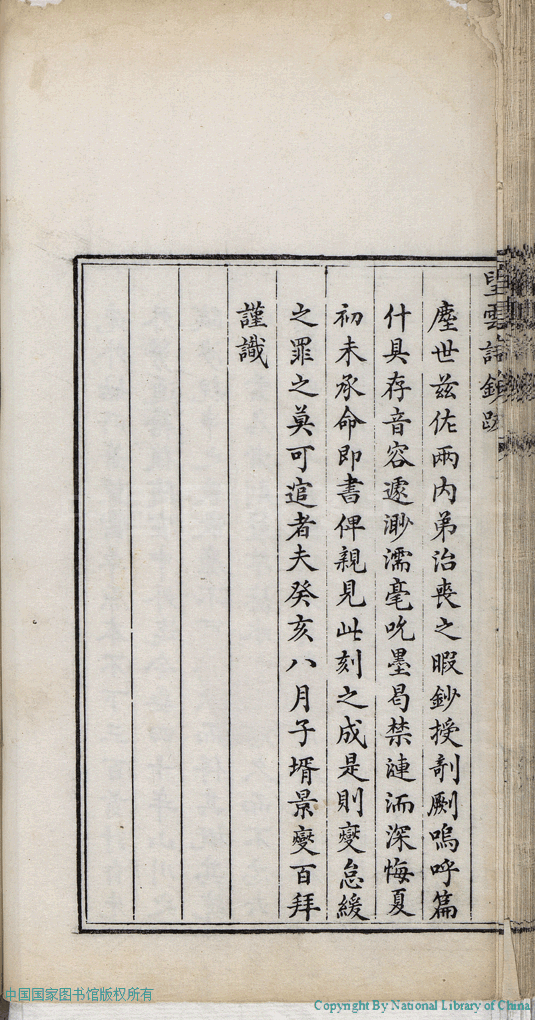 塵世茲佐兩内弟治喪之暇鈔授剞劂嗚呼篇
什具存音容遽渺濡毫吮墨曷禁漣洏深悔夏
初未承命即書俾親見此刻之成是則夔怠緩
之罪之莫可逭者夫癸亥八月子壻景夔百拜
謹識
中国国家图书馆版权所有
Copyright By National Library of China